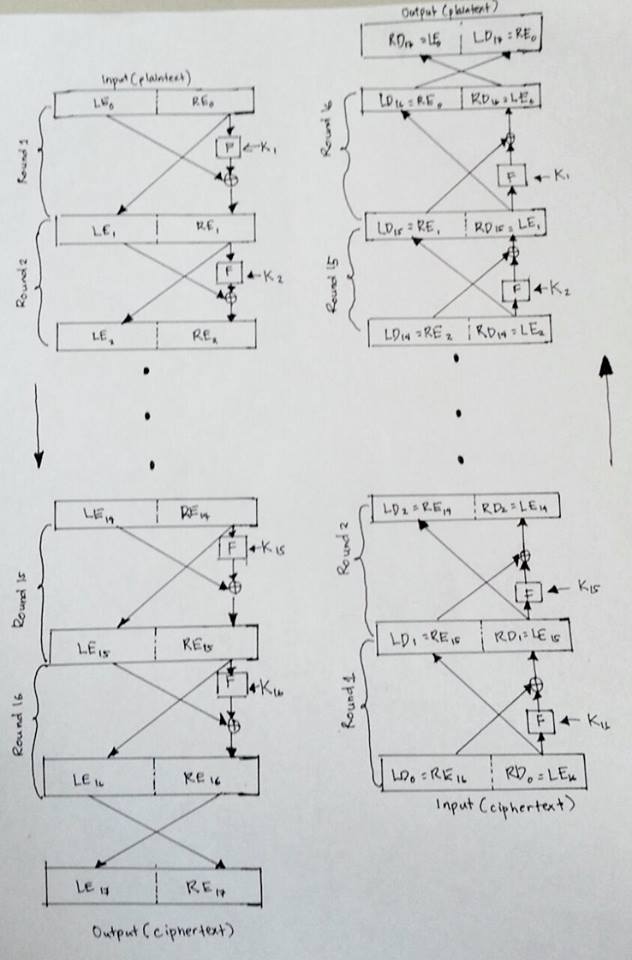 Input (plaintext)
LE₀ RE₀
Round 1
F K₁
LE₁ RE₁
Round 2
F K₂
LE₂ RE₂
LE₁₄ RE₁₄
F K₁₅
Round 15
LE₁₅ RE₁₅
F K₁₆
Round 16
LE₁₆ RE₁₆
LE₁₇ RE₁₇
Output (ciphertext)
Output (plaintext)
RD₁₇ = LE₀ LD₁₇ = RE₀
LD₁₆ = RE₀ RD₁₆ = LE₀
Round 16
F K₁
LD₁₅ = RE₁ RD₁₅ = LE₁
Round 15
F K₂
LD₁₄ = RE₂ RD₁₄ = LE₂
LD₂ = RE₁₄ RD₂ = LE₁₄
Round 2
F K₁₅
LD₁ = RE₁₅ RD₁ = LE₁₅
Round 1
F K₁₆
LD₀ = RE₁₆ RD₀ = LE₁₆
Input (ciphertext)